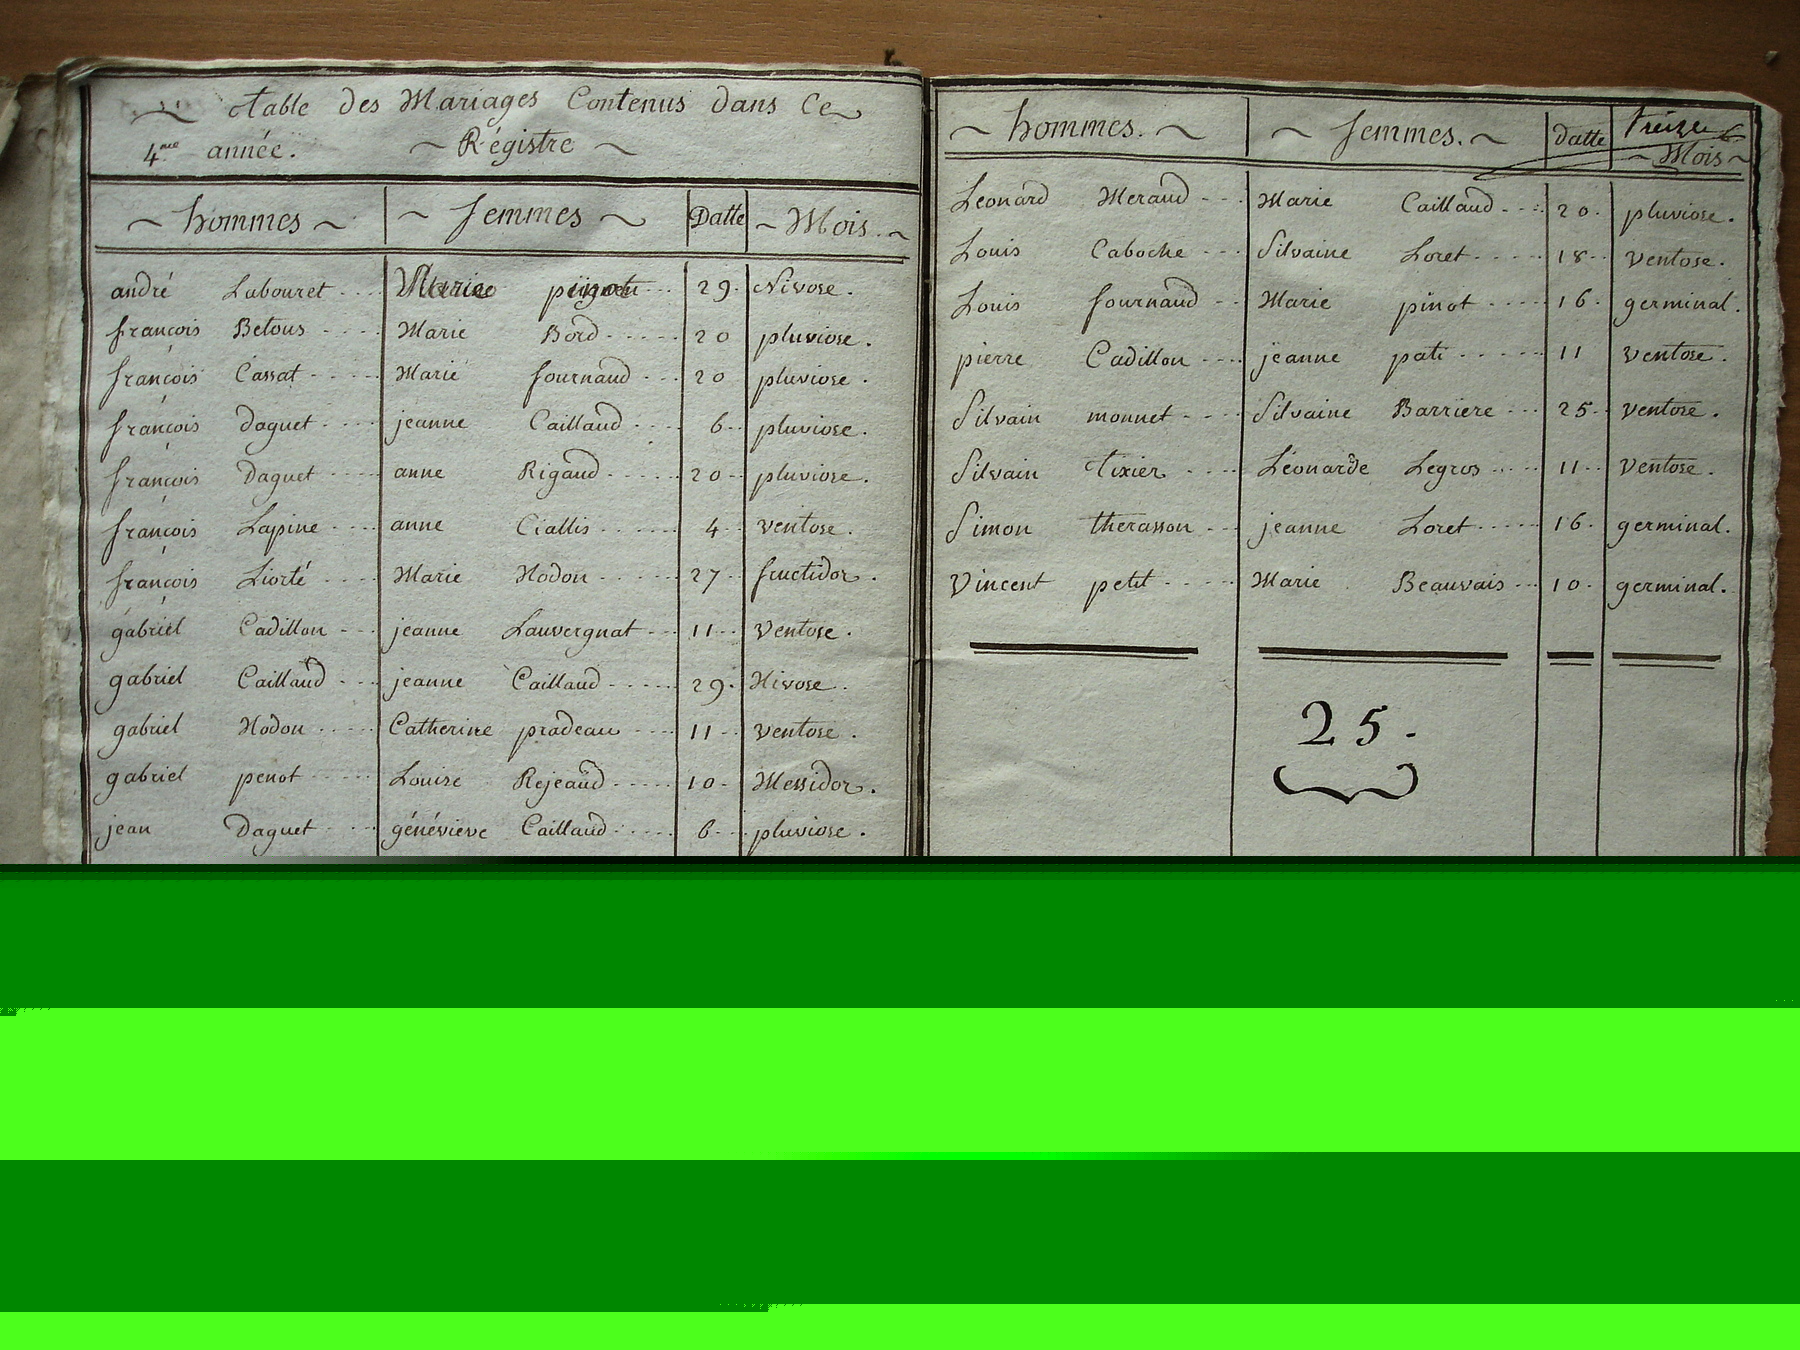 Table des Mariages Contenus dans Ce
4.me année. Régistre
hommes femmes Datte Mois.
andré Labouret Marie 29. Nivose.
françois Betous Marie Bord 20 pluviose.
françois Cassat Marie fournaud 20 pluviose.
françois Daguet jeanne Caillaud 6 pluviose.
françois Daguet anne Rigaud 20 pluviose.
françois Lapine anne Ciallis 4 ventose.
françois Liorté Marie Nodon 27 fructidor.
gabriel Cadillon jeanne Lauvergnat 11 Ventose.
gabriel Caillaud jeanne Caillaud 29. Nivose.
gabriel Nodon Catherine pradeau 11 ventose.
gabriel penot Louise Rejeaud 10 Messidor.
jean Daguet généviève Caillaud 6 pluviose.
hommes. femmes. datte treize
Mois
Leonard Meraud Marie Caillaud 20. pluviose.
Louis Caboche Silvaine Loret 18 ventose.
Louis fournaud Marie pinot 16. germinal.
pierre Cadillon jeanne pati 11 ventose.
Silvain monnet Silvaine Barriere 25 ventose.
Silvain Tixier Léonarde Legros 11 Ventose.
Simon therasson jeanne Loret 16. germinal.
Vincent petit Marie Beauvais 10. germinal.
25.